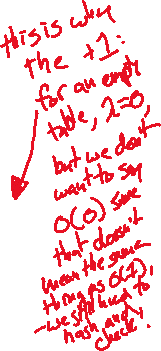 this is why
the +1:
for an empty
table, λ=0,
but we don't
want to say
O(0) since
that doesn't
mean the same
thing as O(1),
- we still have to
hash and
check!